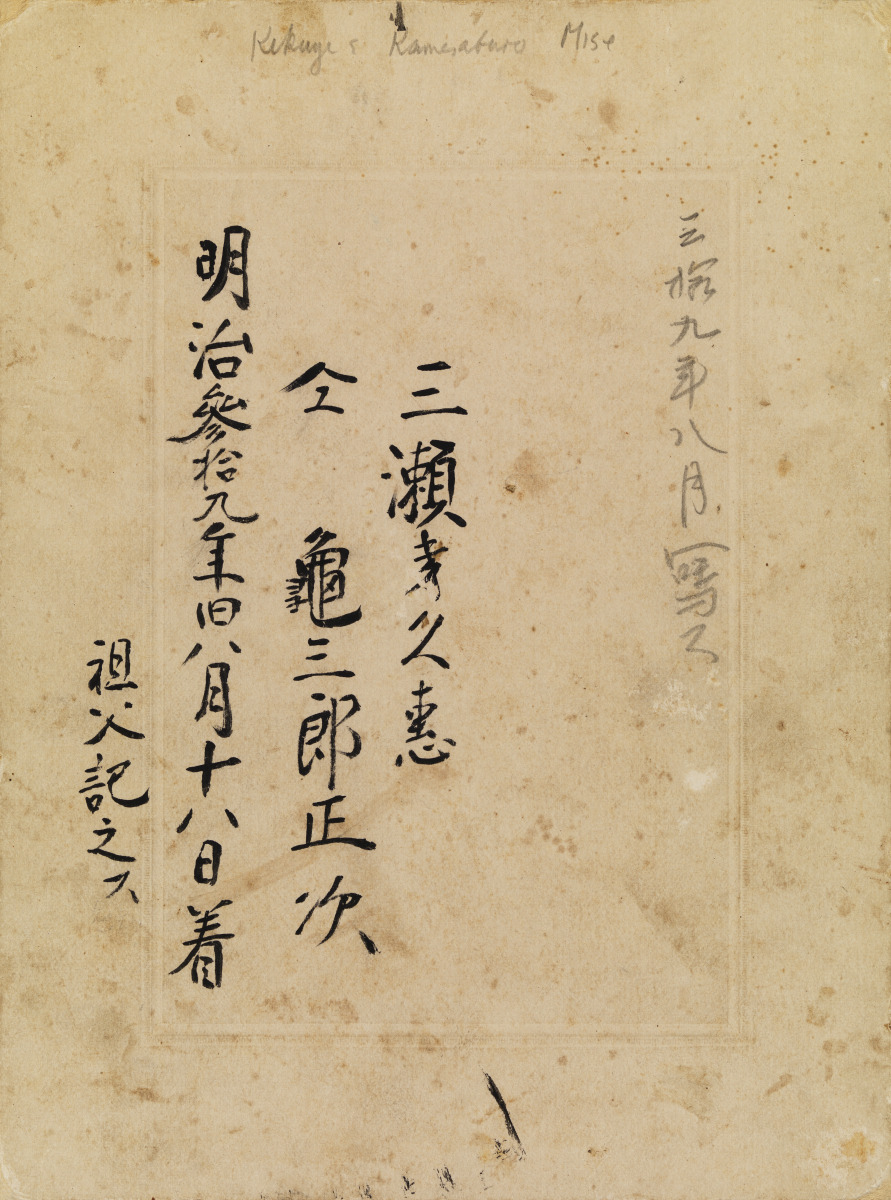 Kikuye & Kamesaburo Mise
三拾九年八月写ス
三瀬幾久恵
仝 亀三郎正次
明治参拾九年旧八月十八日着
祖父記之ス